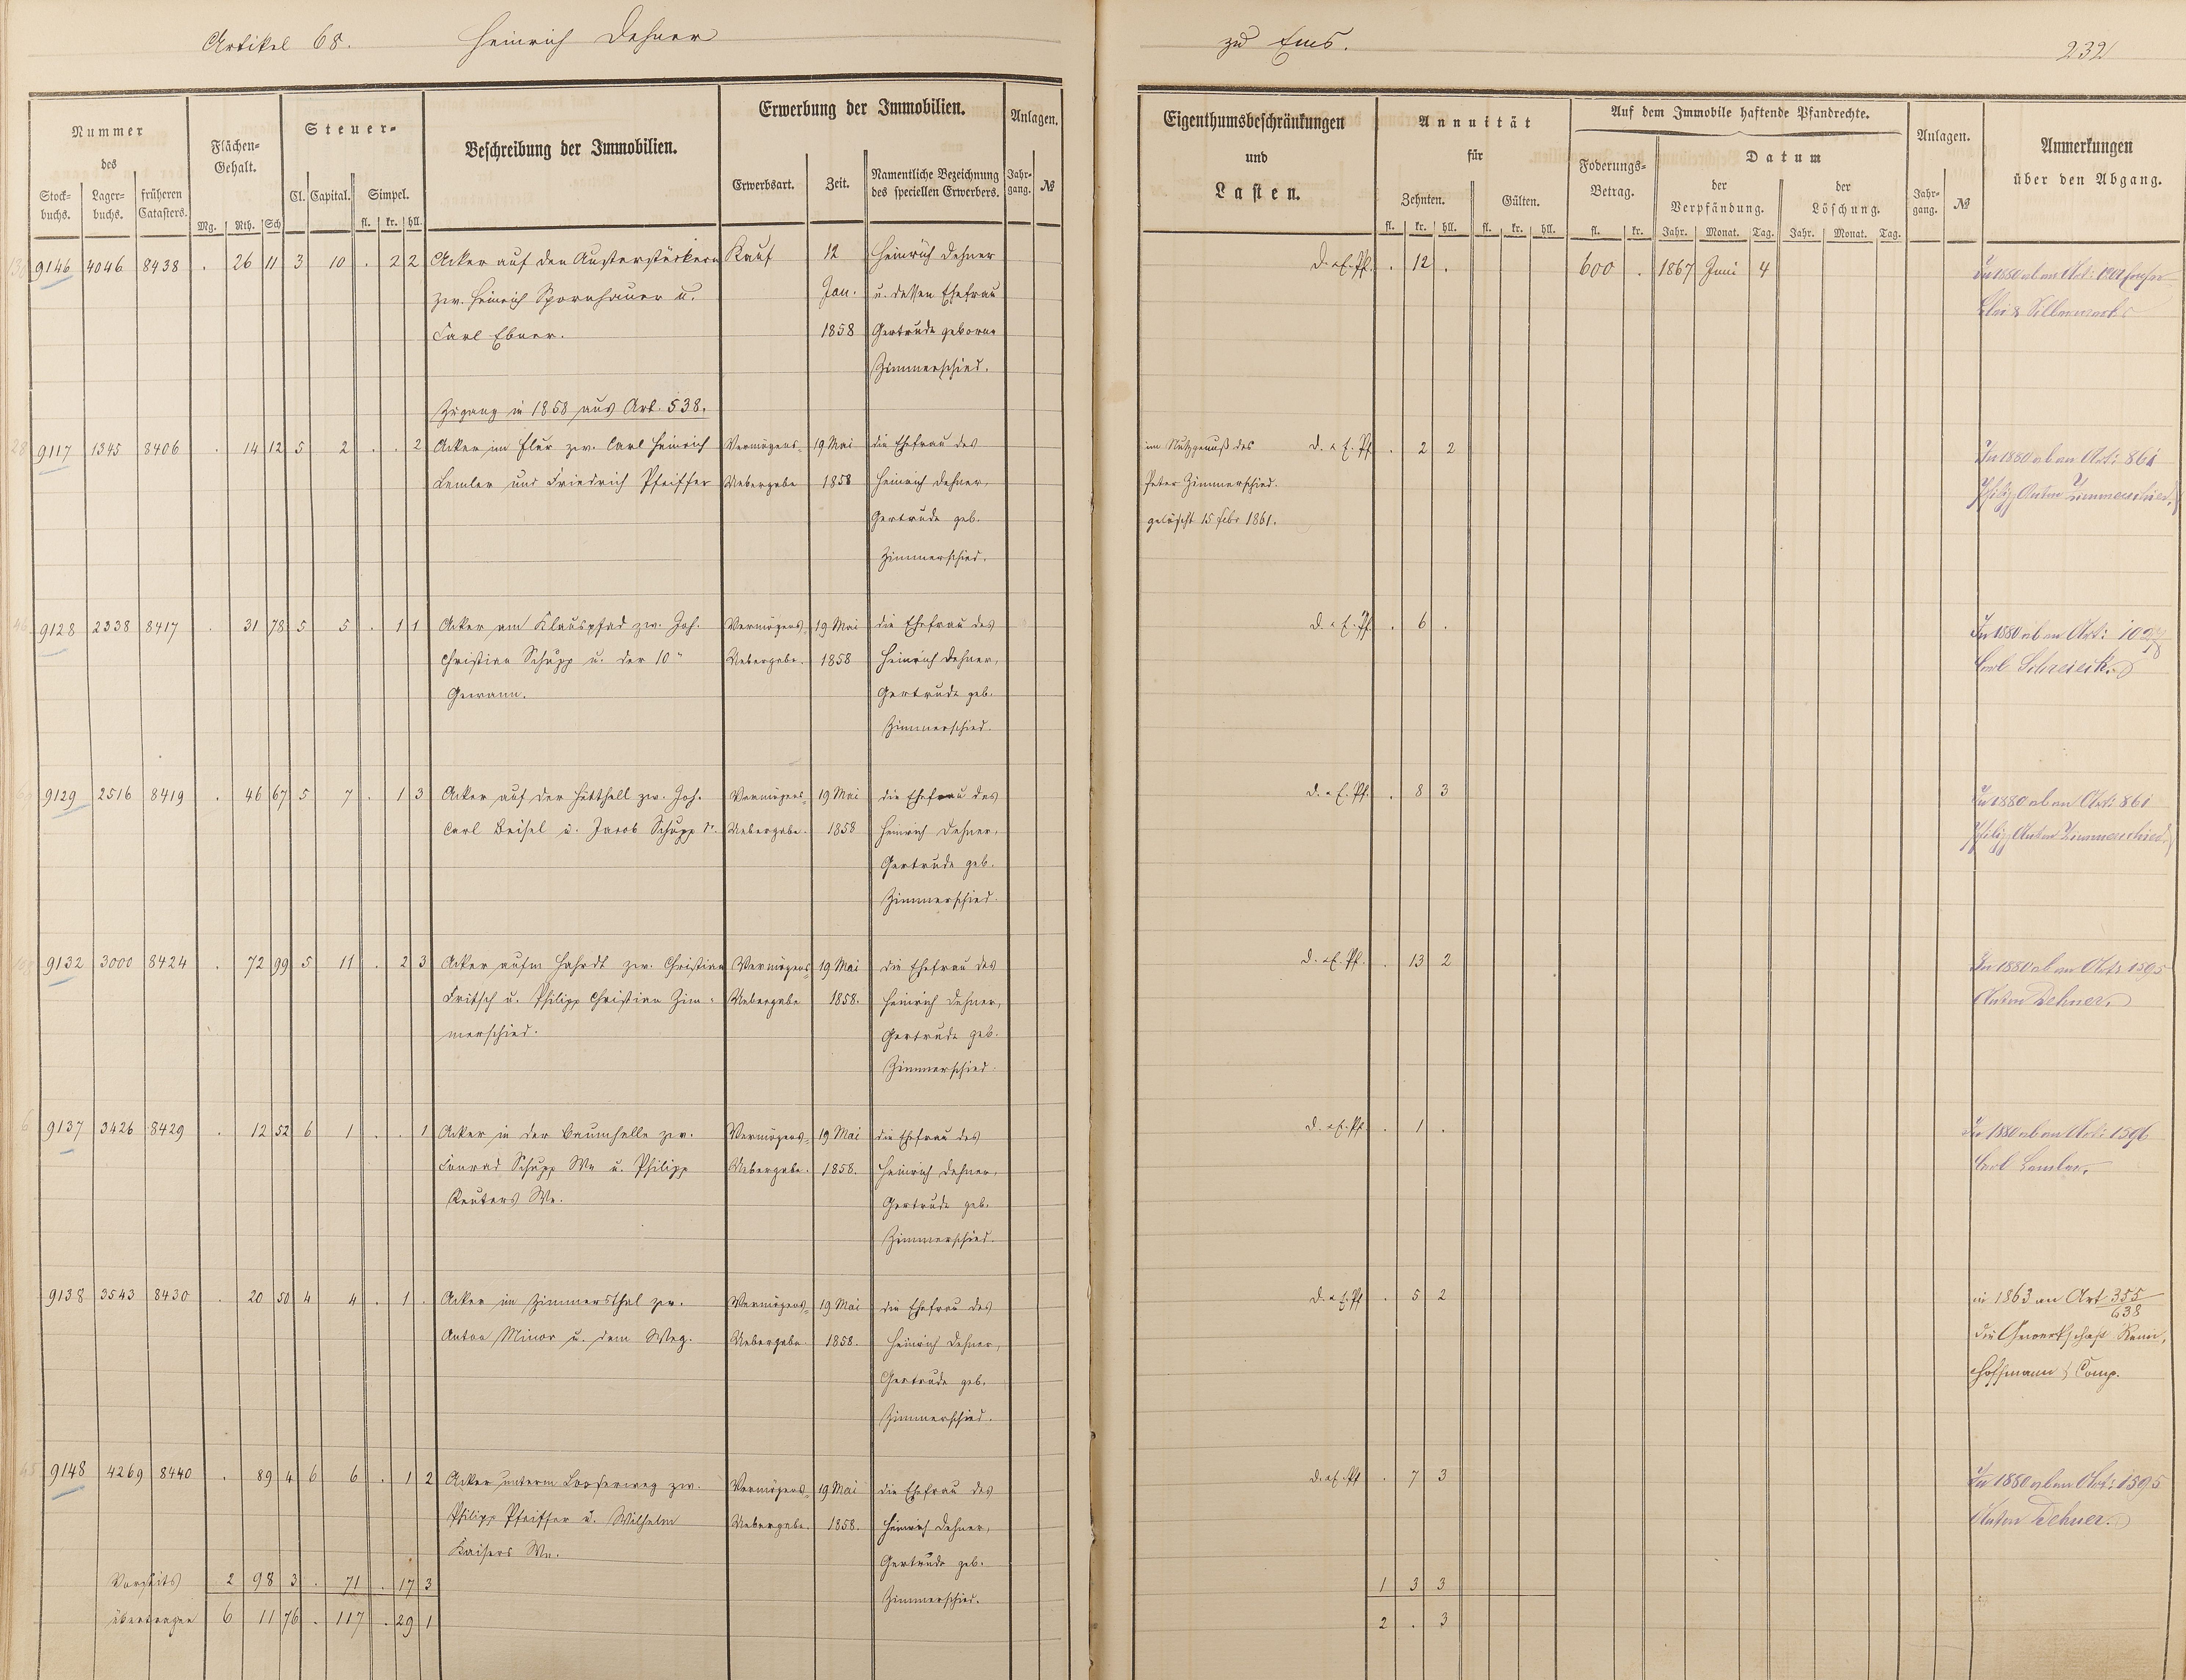 Artikel 68. Heinrich Dehner zu Ems. 232
Nummer des
Stockbuchs. Lagerbuchs. früheren Catasters.
Flächen-Gehalt.
Mg. Rth. Sch
Steuer-
Cl. Capital. Simpel.
fl. kr. hll.
Beschreibung der Immobilien.
Erwerbung der Immobilien.
Erwerbsart. Zeit. Namentliche Bezeichnung des speciellen Erwerbers.
Anlagen.
Jahrgang. №
Eigenthumsbeschränkungen
und
Lasten.
Annuität
für
Zehnten. Gülten.
fl. kr. hll. fl. kr. hll.
Auf dem Immobile haftende Pfandrechte.
Foderungs-Betrag.
fl. kr.
Datum
der Verpfändung. der Löschung.
Jahr. Monat. Tag. Jahr. Monat. Tag.
Anlagen.
Jahrgang. №
Anmerkungen
über den Abgang.
9146 4046 8438 . 26 11 3 10 . 2 2 Acker auf den Kauf 12 Heinrich Dehner D. & E. Pf. . 12 . 600 . 1867 Juni 4 In 1880 ab an Art:
zw. Heinrich Spornhauer u. Jan. u. dessen Ehefrau Blei & Silberwerks
Carl Ebner. 1858 Gertrude geborne
Zimmerschied.
Zugang in 1858 aus Art. 538.
9117 1345 8406 . 14 12 5 2 . . 2 Acker im Flur zw. Carl Heinrich Vermögens- 19 Mai die Ehefrau des im Nutzgenuß des D. & E. Pf. . 2 2 In 1880 ab an Art: 861
Lemler und Friedrich Pfeiffer Uebergabe 1858 Heinrich Dehner, Peter Zimmerschied. Philipp Anton Zimmerschied.
Gertrude geb. gelöscht 15 Febr 1861.
Zimmerschied.
9128 2338 8417 . 31 78 5 5 . 1 1 Acker am Klauspfad zw. Joh. Vermögens- 19 Mai die Ehefrau des D. & E. Pf. . 6 . In 1880 ab an Art:
Christian Schupp u. der 10" Uebergabe. 1858 Heinrich Dehner, Carl
Gewann. Gertrude geb.
Zimmerschied.
9129 2516 8419 . 46 67 5 7 . 1 3 Acker auf der zw. Joh. Vermögens- 19 Mai die Ehefrau des D. & E. Pf. . 8 3 In 1880 ab an Art: 861
Carl Beisel u. Jacob Schupp 1r. Uebergabe. 1858 Heinrich Dehner, Philipp Anton Zimmerschied.
Gertrude geb.
Zimmerschied.
9132 3000 8424 . 72 99 5 11 . 2 3 Acker aufm Hahrdt zw. Christian Vermögens- 19 Mai die Ehefrau des D. & E. Pf. . 13 2 In 1880 ab an Art: 1595
Fritsch u. Philipp Christian Zim- Uebergabe 1858. Heinrich Dehner, Anton Dehner.
merschied. Gertrude geb.
Zimmerschied.
9137 3426 8429 . 12 52 6 1 . . 1 Acker in der Baumhelle zw. Vermögens- 19 Mai die Ehefrau des D. & E. Pf. . 1 . In 1880 ab an Art: 1596
Conrad Schupp We u. Philipp Uebergabe. 1858. Heinrich Dehner, Carl Lemler.
Reuters We. Gertrude geb.
Zimmerschied.
9138 3543 8430 . 20 50 4 4 . 1 . Acker im Zimmersthal zw. Vermögens- 19 Mai die Ehefrau des D. & E. Pf . 5 2 in 1863 an Art 355/638
Anton Minor u. dem Weg. Uebergabe. 1858. Heinrich Dehner, die Gewerkschaft
Gertrude geb. Hoffmann & Comp.
Zimmerschied.
9148 4269 8440 . 89 4 6 6 . 1 2 Acker unterm zw. Vermögens- 19 Mai die Ehefrau des D. & E. Pf . 7 3 In 1880 ab an Art: 1595
Philipp Pfeiffer u. Wilhelm Uebergabe. 1858. Heinrich Dehner, Anton Dehner.
Kaisers We. Gertrude geb.
Vorseits 2 98 3 . 71 . 17 3 Zimmerschied. 1 3 3
übertragen 6 11 76 . 117 . 29 1 2 . 3